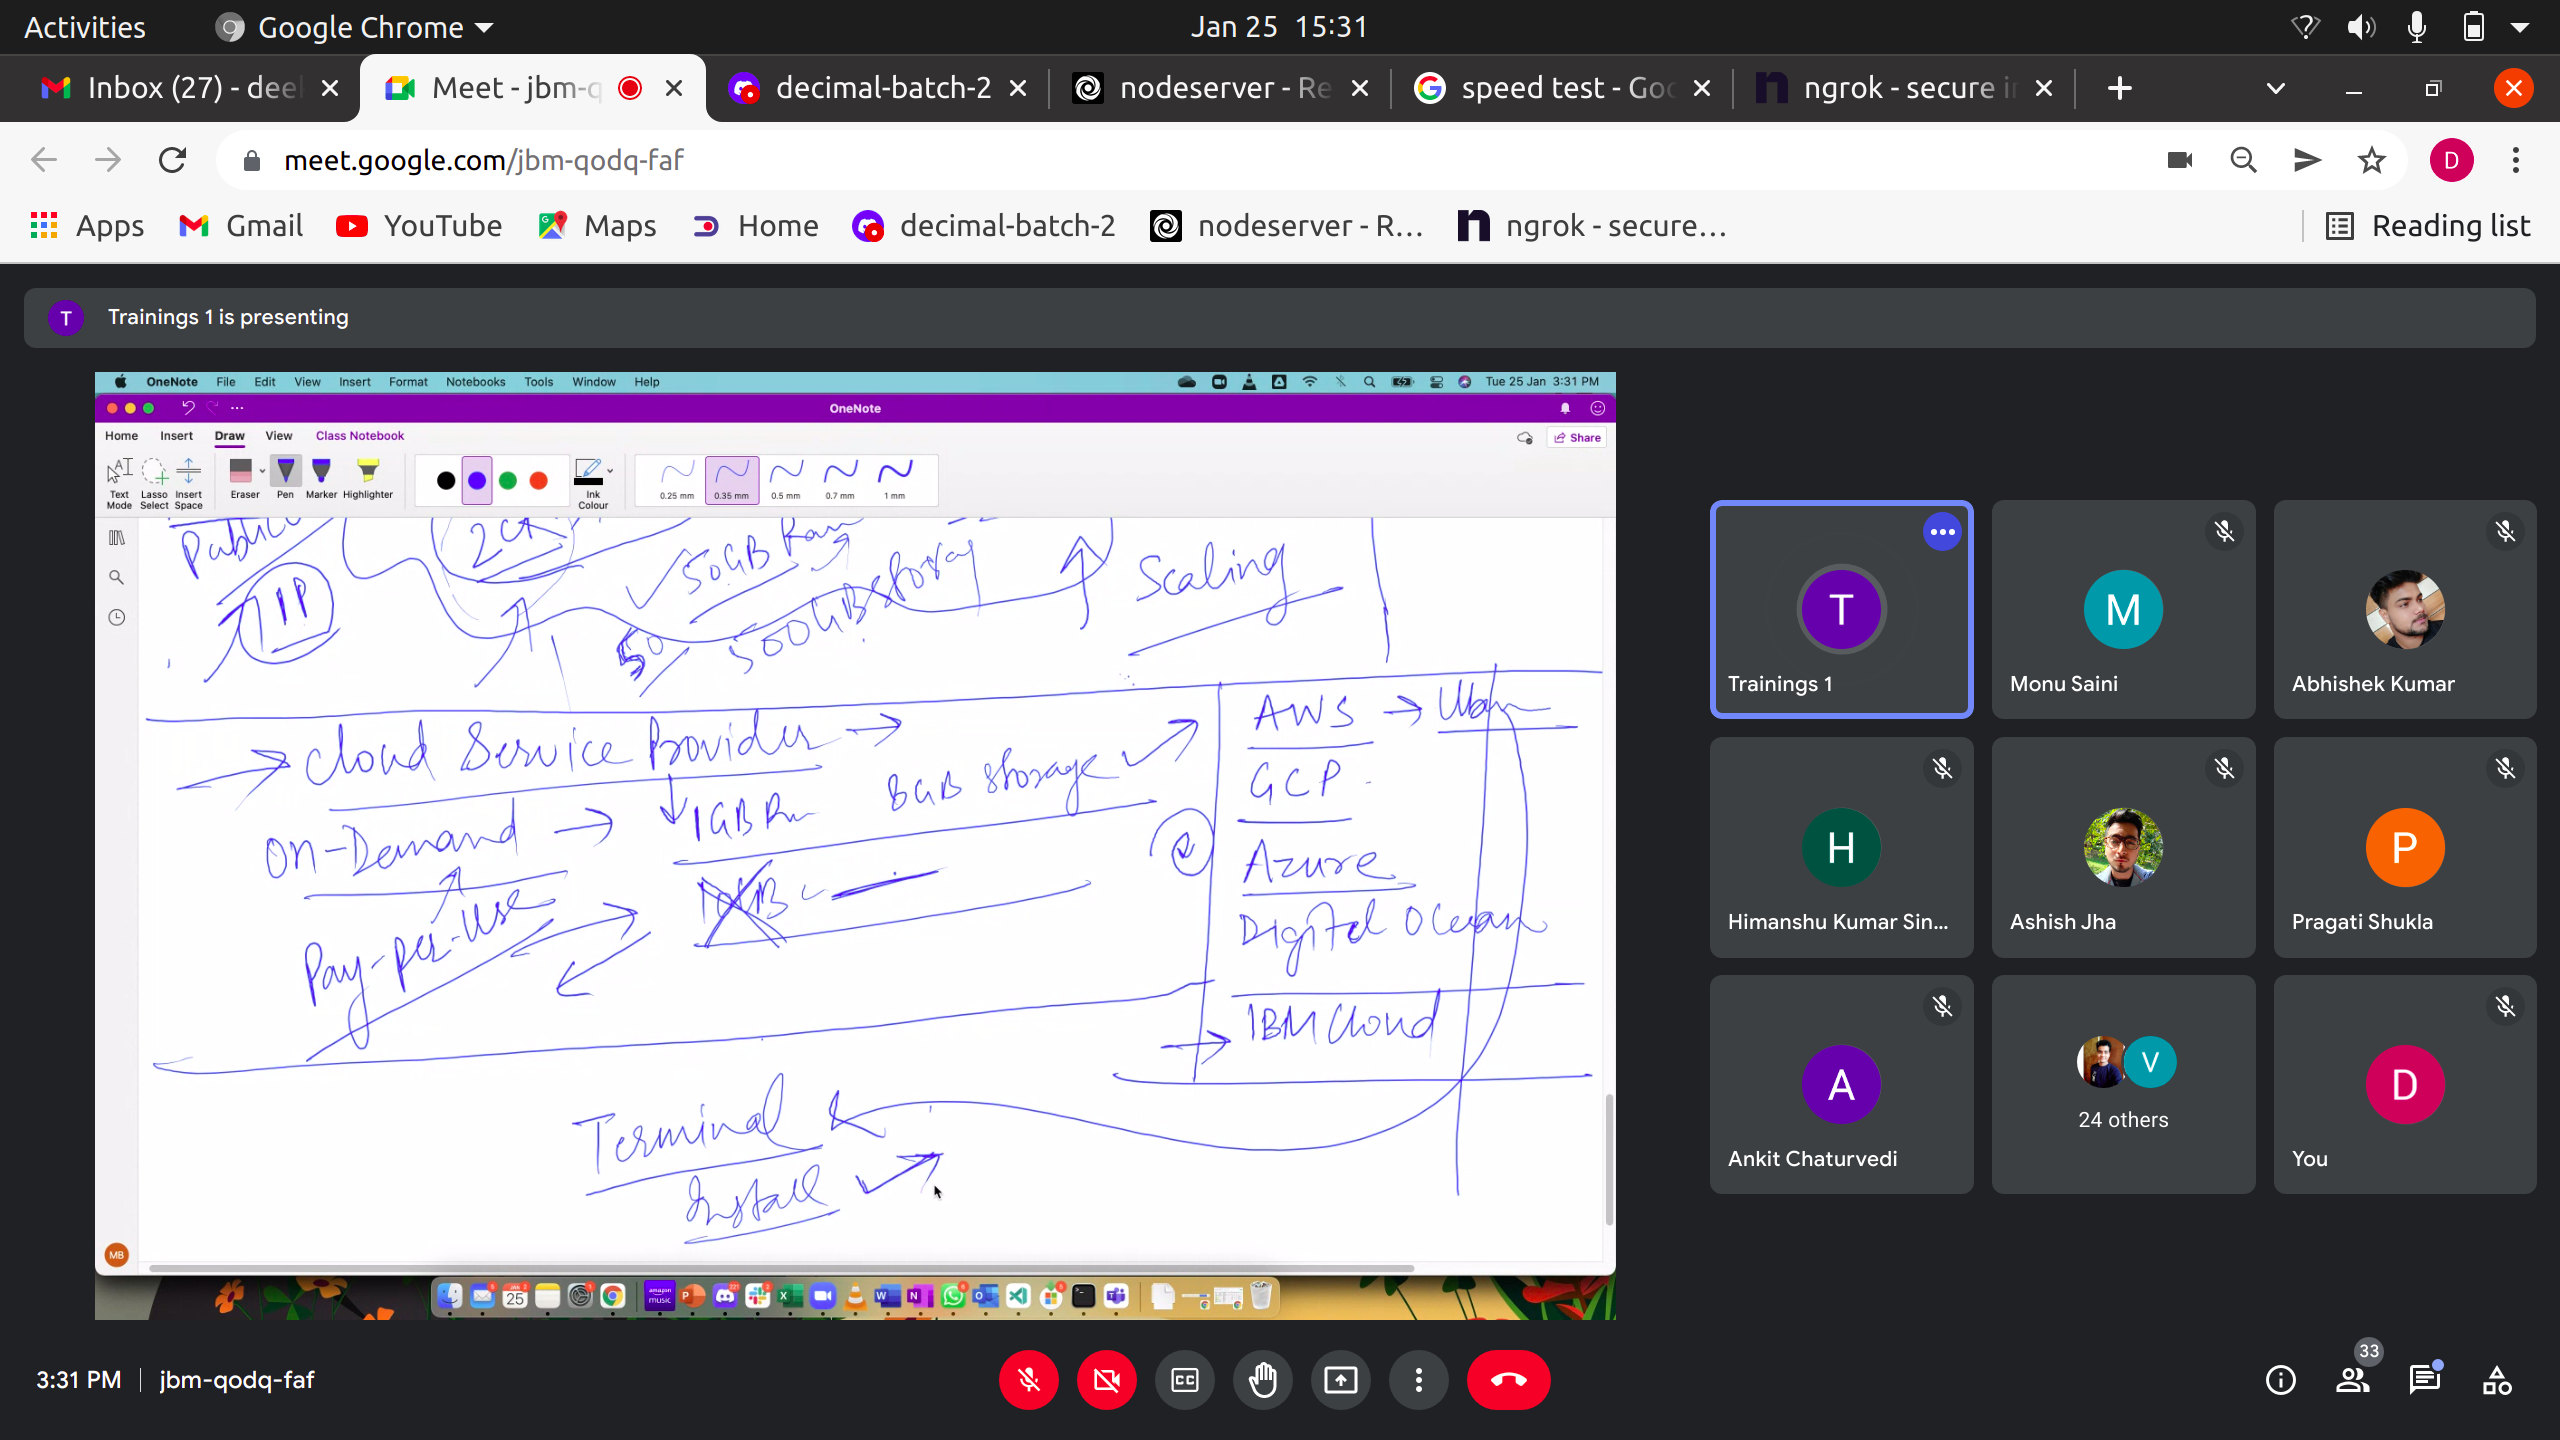 Activities Google Chrome Jan 25 15:31
Inbox (27) - deel Meet - jbm-q decimal-batch-2 nodeserver - Re speed test - Goo ngrok - secure in
meet.google.com/jbm-qodq-faf D
Apps Gmail YouTube Maps Home decimal-batch-2 nodeserver - R... ngrok - secure... Reading list
T Trainings 1 is presenting
OneNote File Edit View Insert Format Notebooks Tools Window Help Tue 25 Jan 3:31 PM
OneNote
Home Insert Draw View Class Notebook Share
Text Mode Lasso Select Insert Space Eraser Pen Marker Highlighter Ink Colour 0.25 mm 0.35 mm 0.5 mm 0.7 mm 1 mm
Public
IP
50GB Ram
50
500GB storag
Scaling
Cloud Service Provider
On-Demand
1GB
8GB storage
10GB
Pay-per-Use
AWS
GCP
Azure
Digital Ocean
IBM Cloud
Terminal
Install
MB
25
T Trainings 1
M Monu Saini
Abhishek Kumar
H Himanshu Kumar Sin...
Ashish Jha
P Pragati Shukla
A Ankit Chaturvedi
V 24 others
D You
3:31 PM jbm-qodq-faf CC 33